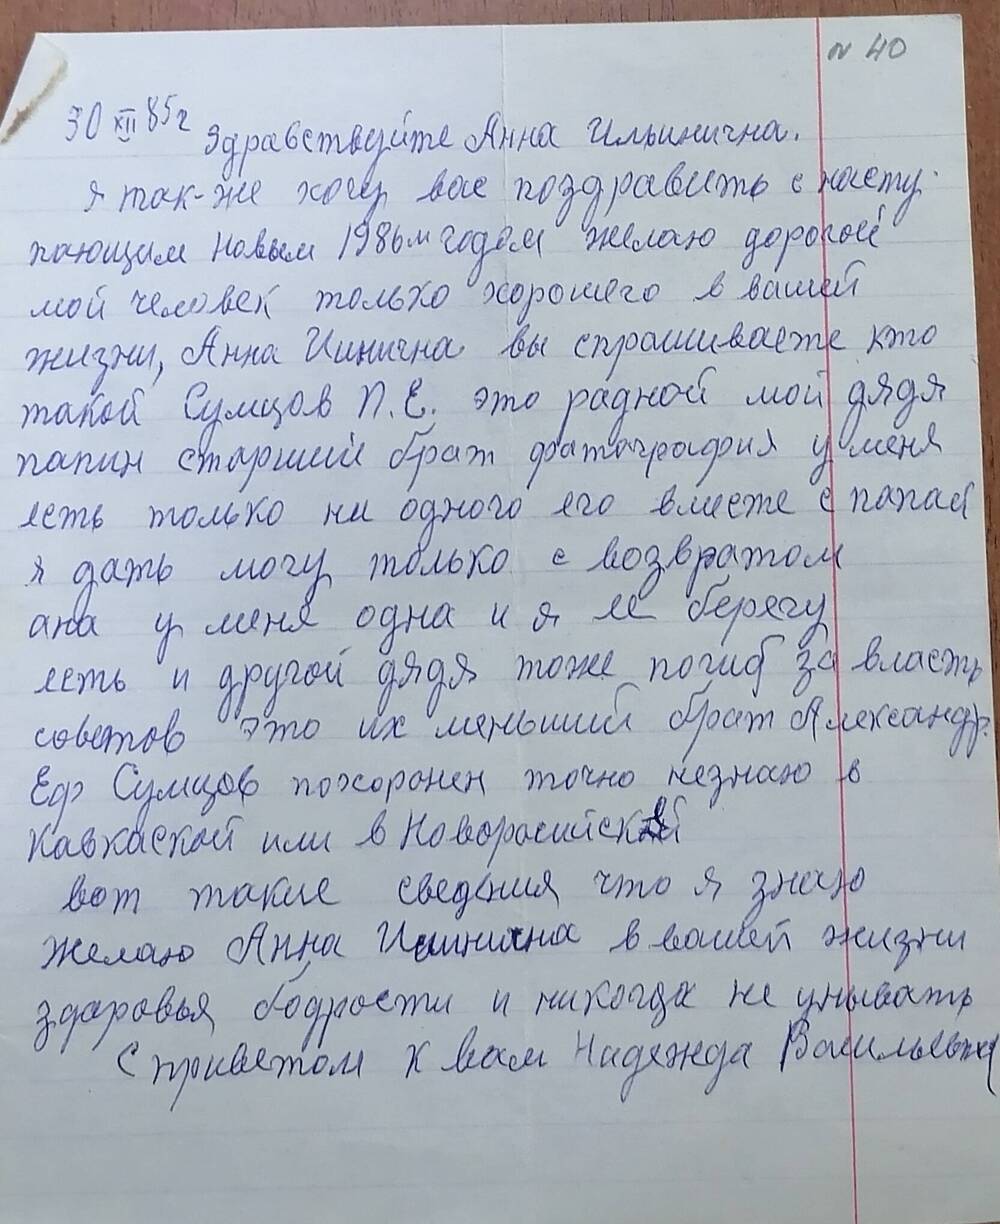 № 40
30 XII 85г Здравствуйте Анна Ильинична.
Я так-же хочу вас поздравить с насту-
пающим Новым 1986м годом желаю дорогой
мой человек только хорошего в вашей
жизни, Анна Иинична вы спрашиваете кто
такой Сумцов П.Е. это радной мой дядя
папин старший брат фатаграфия у меня
есть только ни одного его вместе с папай
я дать могу только с возвратом
ана у меня одна и я её берегу
есть и другой дядя тоже погиб за власть
советов это их меньший брат Александр.
Еф Сумцов похоронен точно незнаю в
Кавкаской или в Новоросийской
вот такие сведения что я знаю
желаю Анна Иинична в вашей жизни
здаровья, бодрости и никогда не унывать
С приветом к вам Надежда Васильевна